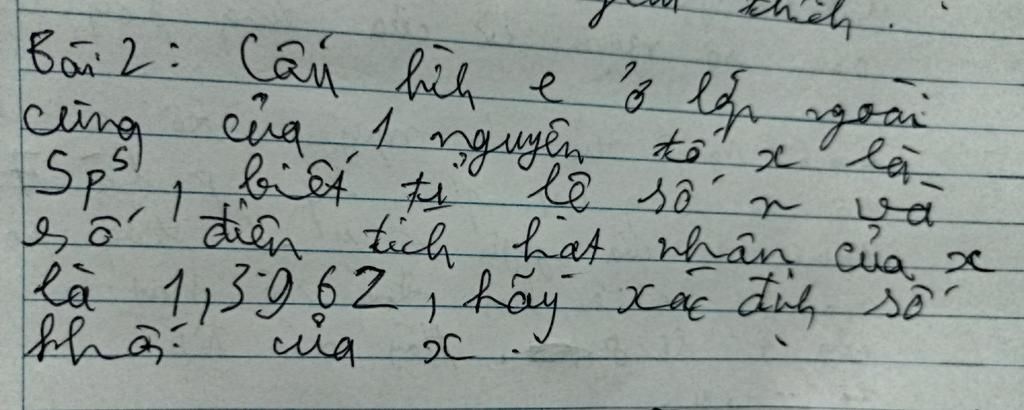 yêu thích.
Bài 2: Cấu hìh e ở lớp ngoài
cùng của 1 nguyên tố x là
5p⁵, biết tỉ lệ số n và
số điện tích hạt nhân của x
là 1,3962, hãy xác địh số
khối của x.